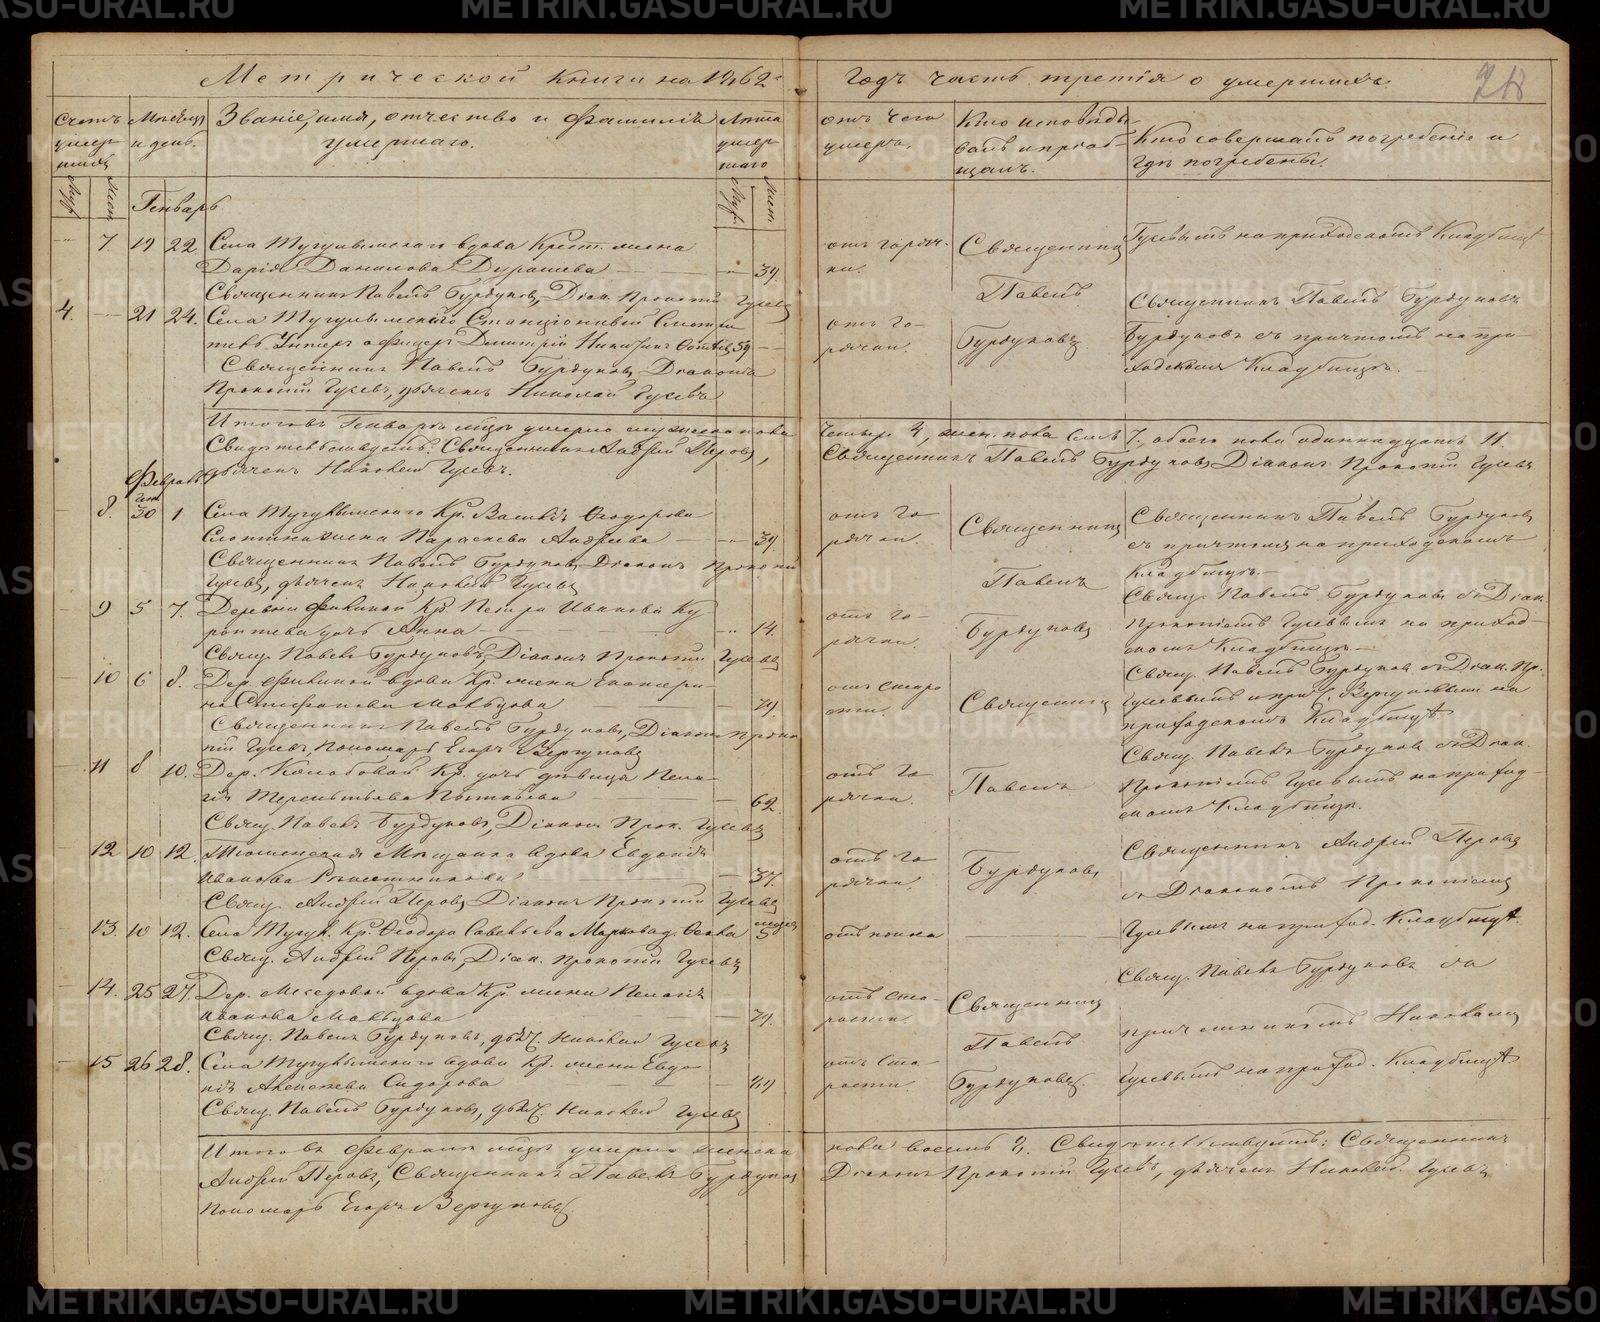 Метрической книги на 1862й
годъ часть третія о умершихъ.
Счетъ умер-шихъ
Мѣсяцъ и день.
Званіе, имя, отчество и фамилія умершаго.
Лѣта умер-шаго
отъ чего умеръ.
Кто исповѣды-валъ и пріоб-щалъ.
Кто совершалъ погребеніе и гдѣ погребены.
Муж.
Жен.
Генварь
Муж.
Жен.
7. 19 22 Села Тугулымскаго вдова Крест. жена
Дарія Данилова Дурашева 39.
отъ горяч-
ки.
Священникъ
на приходскомъ Кладбищѣ
Священникъ Павелъ Бурдуковъ, Діак. Прокопій Гусевъ
4. 21 24. Села Тугулымскаго Станціонный Смотри-
тель Унтеръ офицеръ Дмитрій 59
отъ го-
рячки.
Павелъ
Бурдуковъ
Священникъ Павелъ Бурдуковъ
съ причтомъ на при-
ходскомъ Кладбищѣ.
Священникъ Павелъ Бурдуковъ, Діаконъ
Прокопій Гусевъ, дьячекъ Николай Гусевъ
Итого въ Генварѣ мцѣ умерло мужеска пола
четыре 4, жен. пола семь 7. обоего пола одиннадцать 11
Свидѣтельствуютъ: Священникъ Андрей Перовъ,
Священникъ Павелъ Бурдуковъ Діаконъ Прокопій Гусевъ
дьячекъ Николай Гусевъ.
Февраль
Ген.
8. 30 1 Села Тугулымскаго Кр. Василія Ѳеодорова
жена Параскева Андреева 39.
отъ го-
рячки.
Священникъ
Священникъ Павелъ Бурдуковъ
съ причтомъ на приходскомъ
Кладбищѣ.
Священникъ Павелъ Бурдуковъ Діаконъ Прокопій
Гусевъ, дьячекъ Николай Гусевъ
9 5 7. Деревни Филиной Кр. Петра Иванова
дочь Анна 14.
отъ го-
рячки.
Павелъ
Бурдуковъ
Свящ. Павелъ Бурдуковъ съ Діак.
Прокопіемъ Гусевымъ на приход-
скомъ Кладбищѣ.
Свящ. Павелъ Бурдуковъ, Діаконъ Прокопій Гусевъ
10 6 8. Дер. Филиной вдова Кр. жена Екатери-
на Стефанова Мальцова 79.
отъ старо
сти.
Священникъ
Свящ. Павелъ Бурдуковъ съ Діак. Пр.
Гусевымъ и Вергуновымъ на
приходскомъ Кладбищѣ.
Священникъ Павелъ Бурдуковъ, Діаконъ Проко-
пій Гусевъ, Пономарь Егоръ Вергуновъ
11 8 10. Дер. Колобовой Кр. дочь дѣвица Пела-
гія Терентьева 62.
отъ го-
рячки.
Павелъ
Свящ. Павелъ Бурдуковъ съ Діак.
Прокопіемъ Гусевымъ на приход-
скомъ Кладбищѣ.
Свящ. Павелъ Бурдуковъ, Діаконъ Прок. Гусевъ
12 10 12. Тюменская Мѣщанка вдова Евдокія
Иванова 37.
отъ го-
рячки.
Бурдуковъ
Священникъ Андрей Перовъ
съ Діакономъ Прокопіемъ
Свящ. Андрей Перовъ, Діаконъ Прокопій Гусевъ
13. 10 12. Села Тугул. Кр. Ѳеодора Савельева 5
отъ поноса
Гусевымъ на приход. Кладбищѣ.
Свящ. Андрей Перовъ, Діак. Прокопій Гусевъ
14. 25 27. Дер. вдова Кр. жена Пелагія
Иванова Мальцова 79.
отъ ста-
рости.
Священникъ
Павелъ
Свящ. Павелъ Бурдуковъ съ
причетникомъ Николаемъ
Свящ. Павелъ Бурдуковъ, дьяч. Николай Гусевъ
15 26 28. Села Тугулымскаго вдова Кр. жена Евдо-
кія Сидорова
отъ ста-
рости.
Бурдуковъ.
Гусевымъ на приход. Кладбищѣ.
Свящ. Павелъ Бурдуковъ, дьяч. Николай Гусевъ
Итого въ Февралѣ мцѣ умерло женска
пола восемь 8. Свидѣтельствуютъ: Священникъ
Андрей Перовъ, Священникъ Павелъ Бурдуковъ
Діаконъ Прокопій Гусевъ, дьячекъ Николай Гусевъ
Пономарь Егоръ Вергуновъ.
METRIKI.GASO-URAL.RU